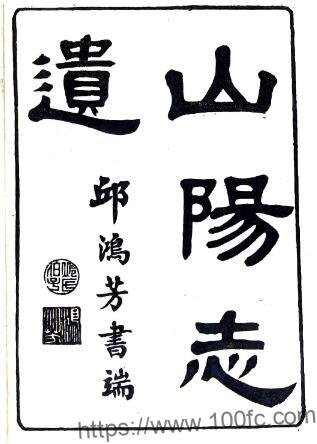 山陽志
遺
邱鴻芳書端
https://www.100fc.com